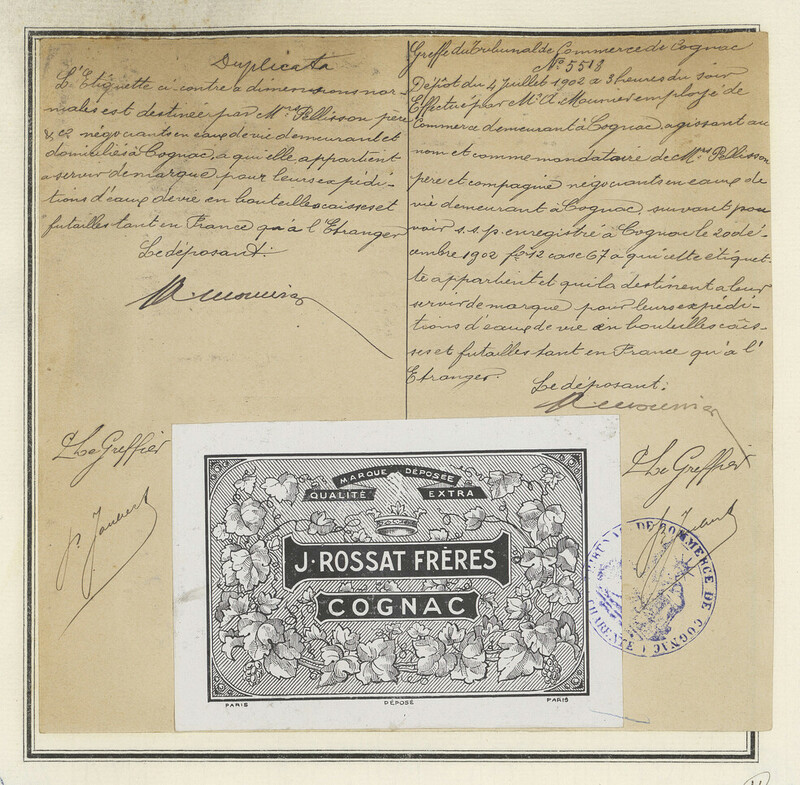 Duplicata
L'Etiquette ci-contre a dimensions nor-
males est destinée par Mrs Pellisson père
& Co négociants en eaux de vie demeurant et
domiciliés à Cognac, a qui elle appartient
a servir de marque pour leurs expédi-
tions d'eaux de vie en bouteilles caisses et
futailles tant en France qu'a l'Etranger
Le déposant:
A Mounier
P. Le Greffier
P. Jaubert
Greffe du Tribunal de Commerce de Cognac
No 5518
Dépôt du 4 Juillet 1902 a 3 heures du soir
Effectué par Mr A. Mounier employé de
Commerce demeurant à Cognac, agissant au
nom et comme mandataire de Mrs Pellisson
père et compagnie négociants en eaux de
vie demeurant à Cognac, suivant pou-
voir s.s.p. enregistré à Cognac le 20 dé-
cembre 1902 fo 12 case 67 a qui cette étiquet-
te appartient et qui la destinent a leur
servir de marque pour leurs expédi-
tions d'eaux de vie en bouteilles cais-
ses et futailles tant en France qu'a l'
Etranger.
Le déposant:
A Mounier
P. Le Greffier
P. Jaubert
MARQUE DÉPOSÉE
QUALITÉ EXTRA
J. ROSSAT FRÈRES
COGNAC
PARIS DÉPOSÉ PARIS
TRIBUNAL DE COMMERCE DE COGNAC
CHARENTE